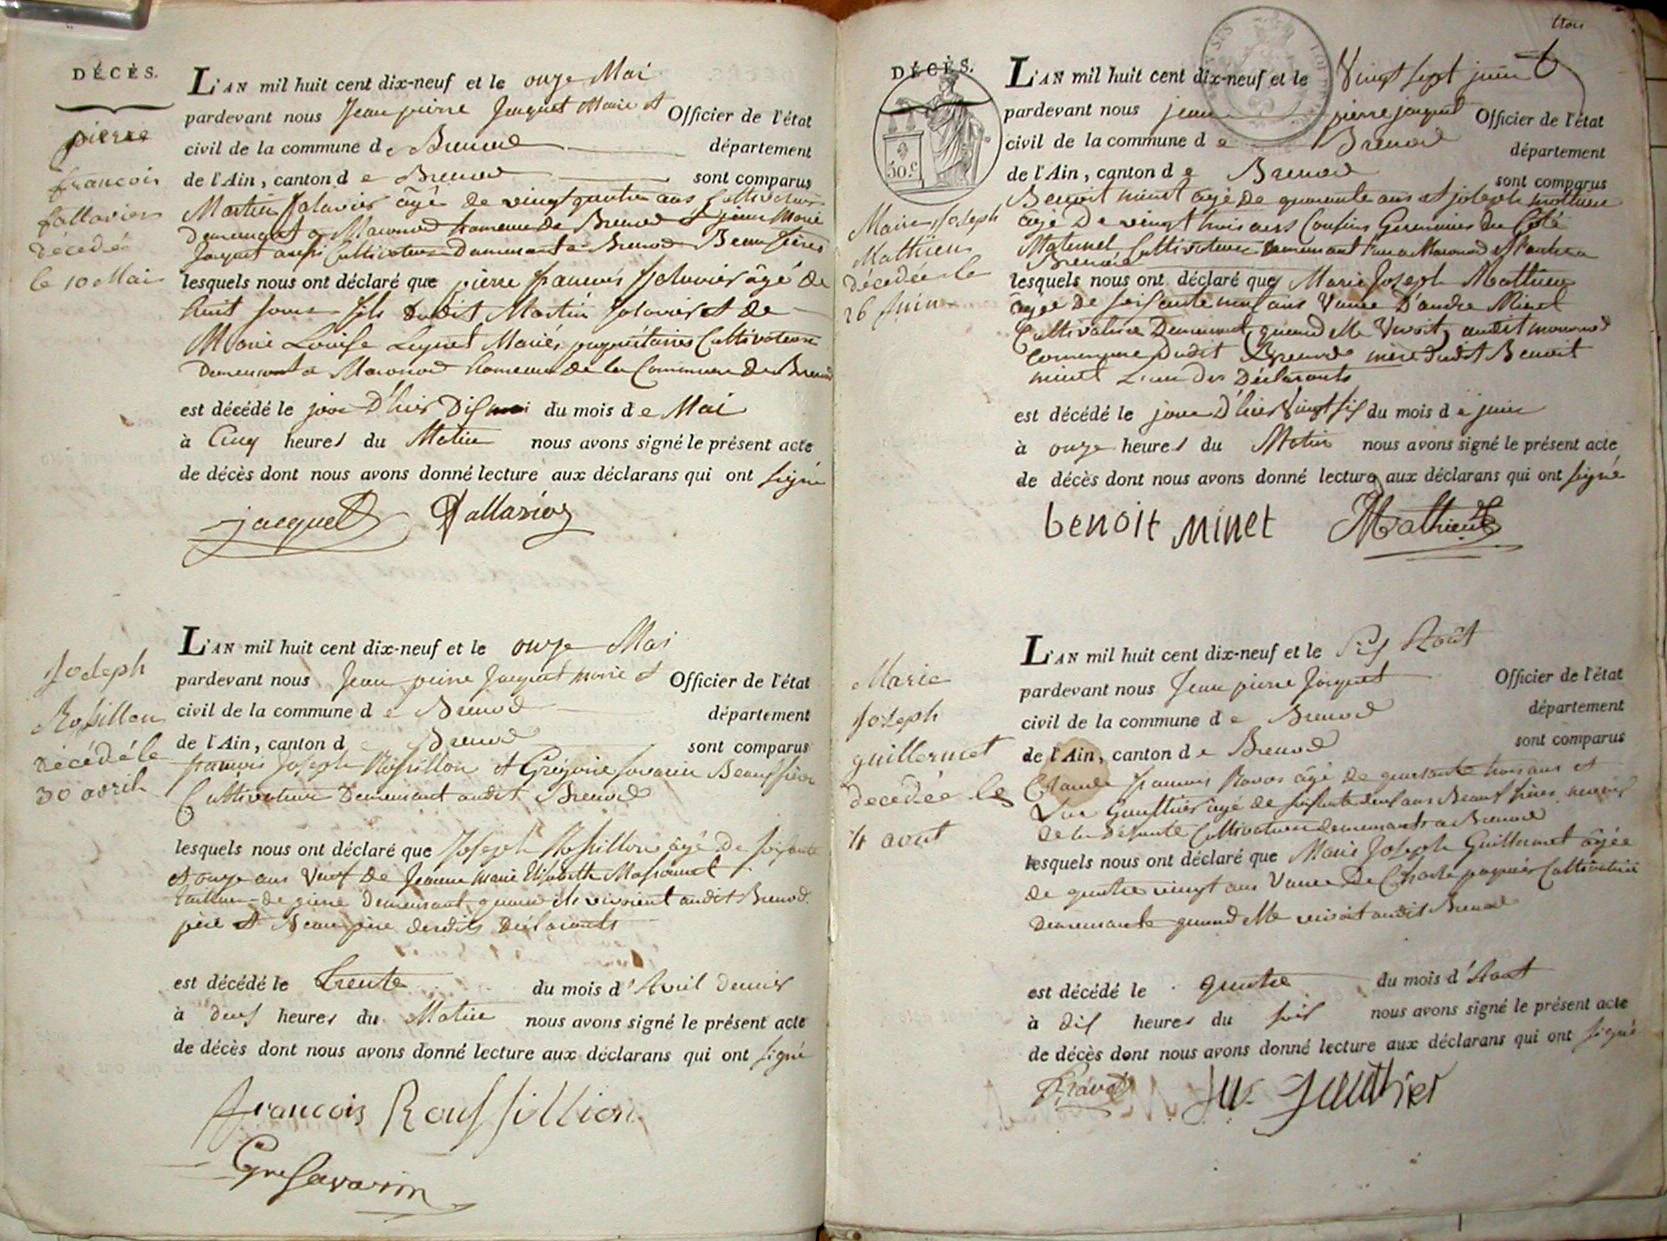 DÉCÈS.
pierre
francois
fallavier
decedé
le 10 Mai
L'AN mil huit cent dix-neuf et le onze Mai
pardevant nous Jean pierre Jacquet Maire et Officier de l'état
civil de la commune de Brenod département
de l'Ain, canton de Brenod sont comparus
Martin falavier âgé de vingt quatre ans Cultivateur
demeurant a Macconod hameau de Brenod et pierre Marie
Jacquet aussi Cultivateur demeurant a Brenod Beau frères
lesquels nous ont déclaré que pierre francois falavier âgé de
huit jours fils dudit Martin falavier et de
Marie Louise Mariés propriétaires Cultivateurs
demeurant a Maconod hameau de la Commune de Brenod
est décédé le jour D'hier Dix mai du mois de Mai
à Cinq heures du Matin nous avons signé le présent acte
de décès dont nous avons donné lecture aux déclarans qui ont signé
jacquet fallavier
Joseph
Rossillon
décédé le
30 avril
L'AN mil huit cent dix-neuf et le onze Mai
pardevant nous Jean pierre Jacquet maire et Officier de l'état
civil de la commune de Brenod département
de l'Ain, canton de Brenod sont comparus
francois Joseph Rossillon et Grégoire savarin Beaux frères
Cultivateurs Demeurant audit Brenod
lesquels nous ont déclaré que Joseph Rossillon âgé de soixante
et onze ans Veuf de Jeanne marie Elisabeth Massonnet
tailleur de pierre demeurant quand ils vivoient audit Brenod
père et Beau père desdits déclarants
est décédé le trente du mois d'Avril dernier
à deux heures du Matin nous avons signé le présent acte
de décès dont nous avons donné lecture aux déclarans qui ont signé
francois Roussillion
Gre Savarin
trois
DÉCÈS.
50.c
Marie Joseph
Mathieu
décédée le
26 Juin
L'AN mil huit cent dix-neuf et le Vingt sept juin
pardevant nous jean pierre jacquet Officier de l'état
civil de la commune de Brenod département
de l'Ain, canton de Brenod sont comparus
Benoit minet âgé de quarante ans et joseph mathieu
âgé De vingt trois ans Cousins Germains du Coté
Maternel Cultivateurs demeurant l'un a Maconod et l'autre a
Brenod
lesquels nous ont déclaré que Marie Joseph Mathieu
âgée De soixante neuf ans Veuve D'andré Minet
Cultivatrice Demeurant quand elle Vivoit audit maconod
Commune dudit Brenod mère dudit Benoit
minet L'un des Déclarants
est décédé le jour D'hier Vingt six du mois de juin
à onze heures du Matin nous avons signé le présent acte
de décès dont nous avons donné lecture aux déclarans qui ont signé
benoit minet Mathieu
Marie
Joseph
guillermet
decedée le
4 aout
L'AN mil huit cent dix-neuf et le Six Août
pardevant nous Jean pierre Jacquet Officier de l'état
civil de la commune de Brenod département
de l'Ain, canton de Brenod sont comparus
Claude francois Ravot âgé de quarante trois ans et
Luc Gauthier âgé de soixante deux ans Beaux frères neveux
de la defunte Cultivateurs demeurants a Brenod
lesquels nous ont déclaré que Marie Joseph Guillermet âgée
de quatre vingt ans Veuve De Charle Cultivatrice
Demeurante quand elle vivoit audit Brenod
est décédé le quatre du mois d'Aout
à dix heures du soir nous avons signé le présent acte
de décès dont nous avons donné lecture aux déclarans qui ont signé
Ravot luc gauthier